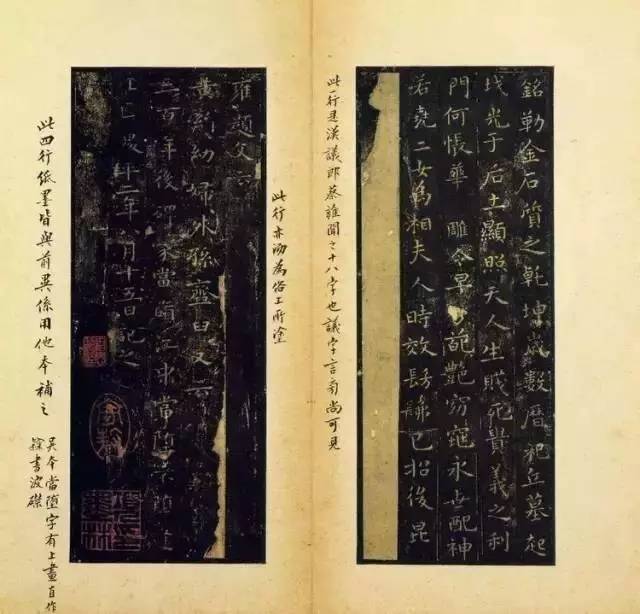 銘勒金石質之乾坤歲數曆祀丘墓起
墳光于后土顯照天人生賤死貴義之利
門何悵華雕令早分葩艷窈窕永世配神
若堯二女為湘夫人時效髣髴已招後昆
此一行是漢議郎蔡雍聞之十八字也議字言旁尚可見
此行亦泐為俗工所塗
雍題文云
黃絹幼婦外孫齏臼又云
三百年後碑冢當墮江中當墮不墮逢
王叵昇平二年八月十五日記之
此四行紙墨皆與前異係用他本補之
吳本當墮字有上畫直作
隸書波磔